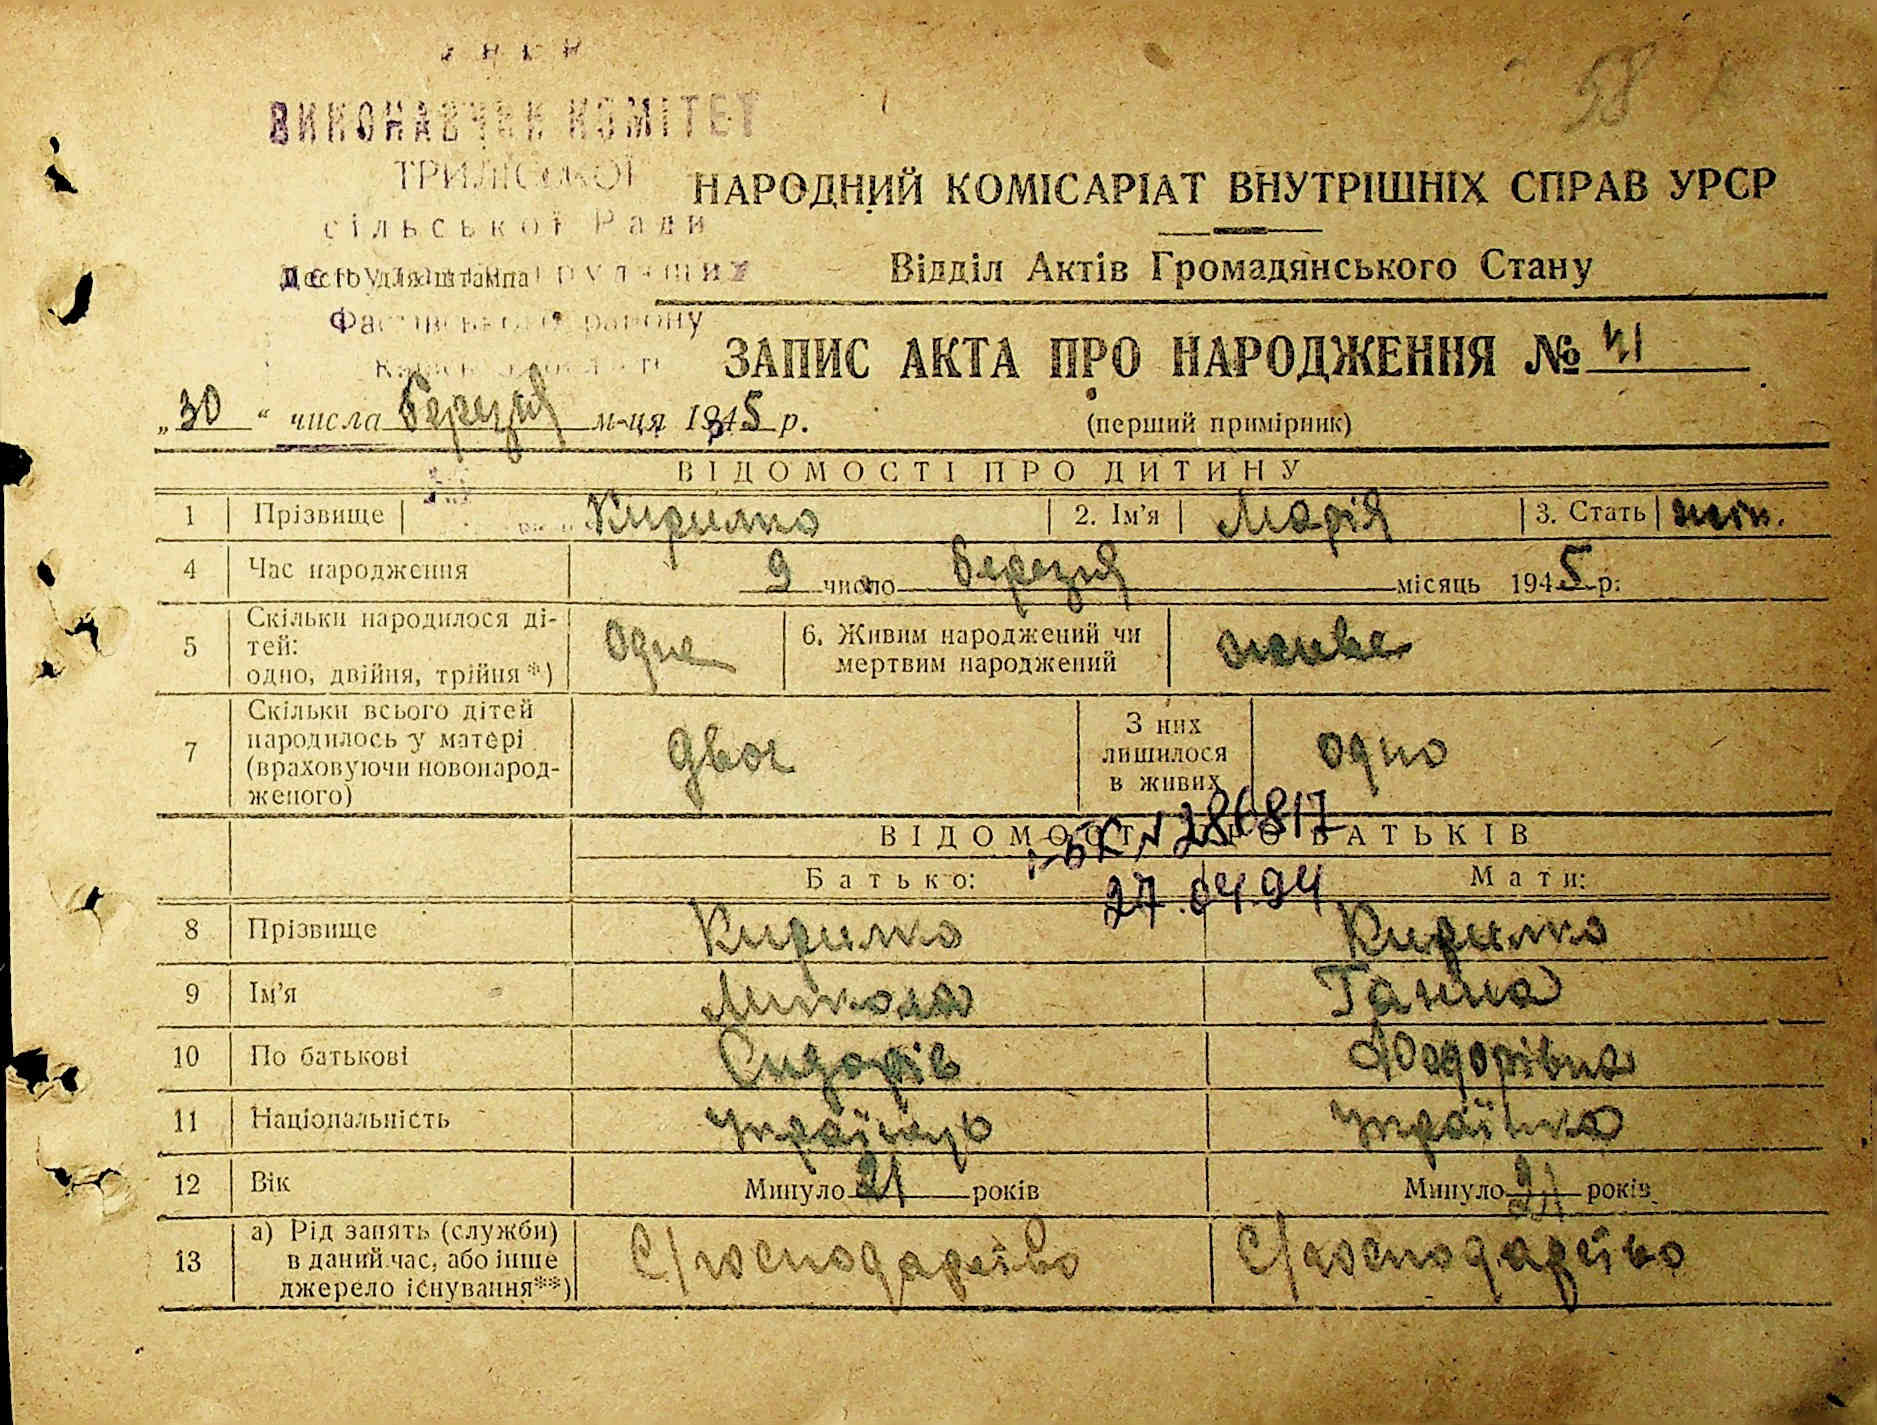 УРСР
ВИКОНАВЧИЙ КОМІТЕТ
ТРИЛІСЬКОЇ
сільської Ради
Фастівського району
58
НАРОДНИЙ КОМІСАРІАТ ВНУТРІШНІХ СПРАВ УРСР
Відділ Актів Громадянського Стану
Місце для штампа
ЗАПИС АКТА ПРО НАРОДЖЕННЯ № 41
„30“ числа березня м-ця 1945 р.
(перший примірник)
ВІДОМОСТІ ПРО ДИТИНУ
1 Прізвище Кирилко 2. Ім'я Марія 3. Стать жін.
4 Час народження 9 число березня місяць 1945 р.
5 Скільки народилося ді-
тей:
одно, двійня, трійня*) одне 6. Живим народжений чи
мертвим народжений живе
7 Скільки всього дітей
народилось у матері
(враховуючи новонарод-
женого) двоє З них
лишилося
в живих одно
ВІДОМОСТІ ПРО БАТЬКІВ
I-БК № 286817
27.04.94
Батько: Мати:
8 Прізвище Кирилко Кирилко
9 Ім'я Микола Ганна
10 По батькові Сидорів Федорівна
11 Національність Українець Українка
12 Вік Минуло 21 років Минуло 21 років
13 а) Рід занять (служби)
в даний час, або інше
джерело існування**) С/господарство С/господарство